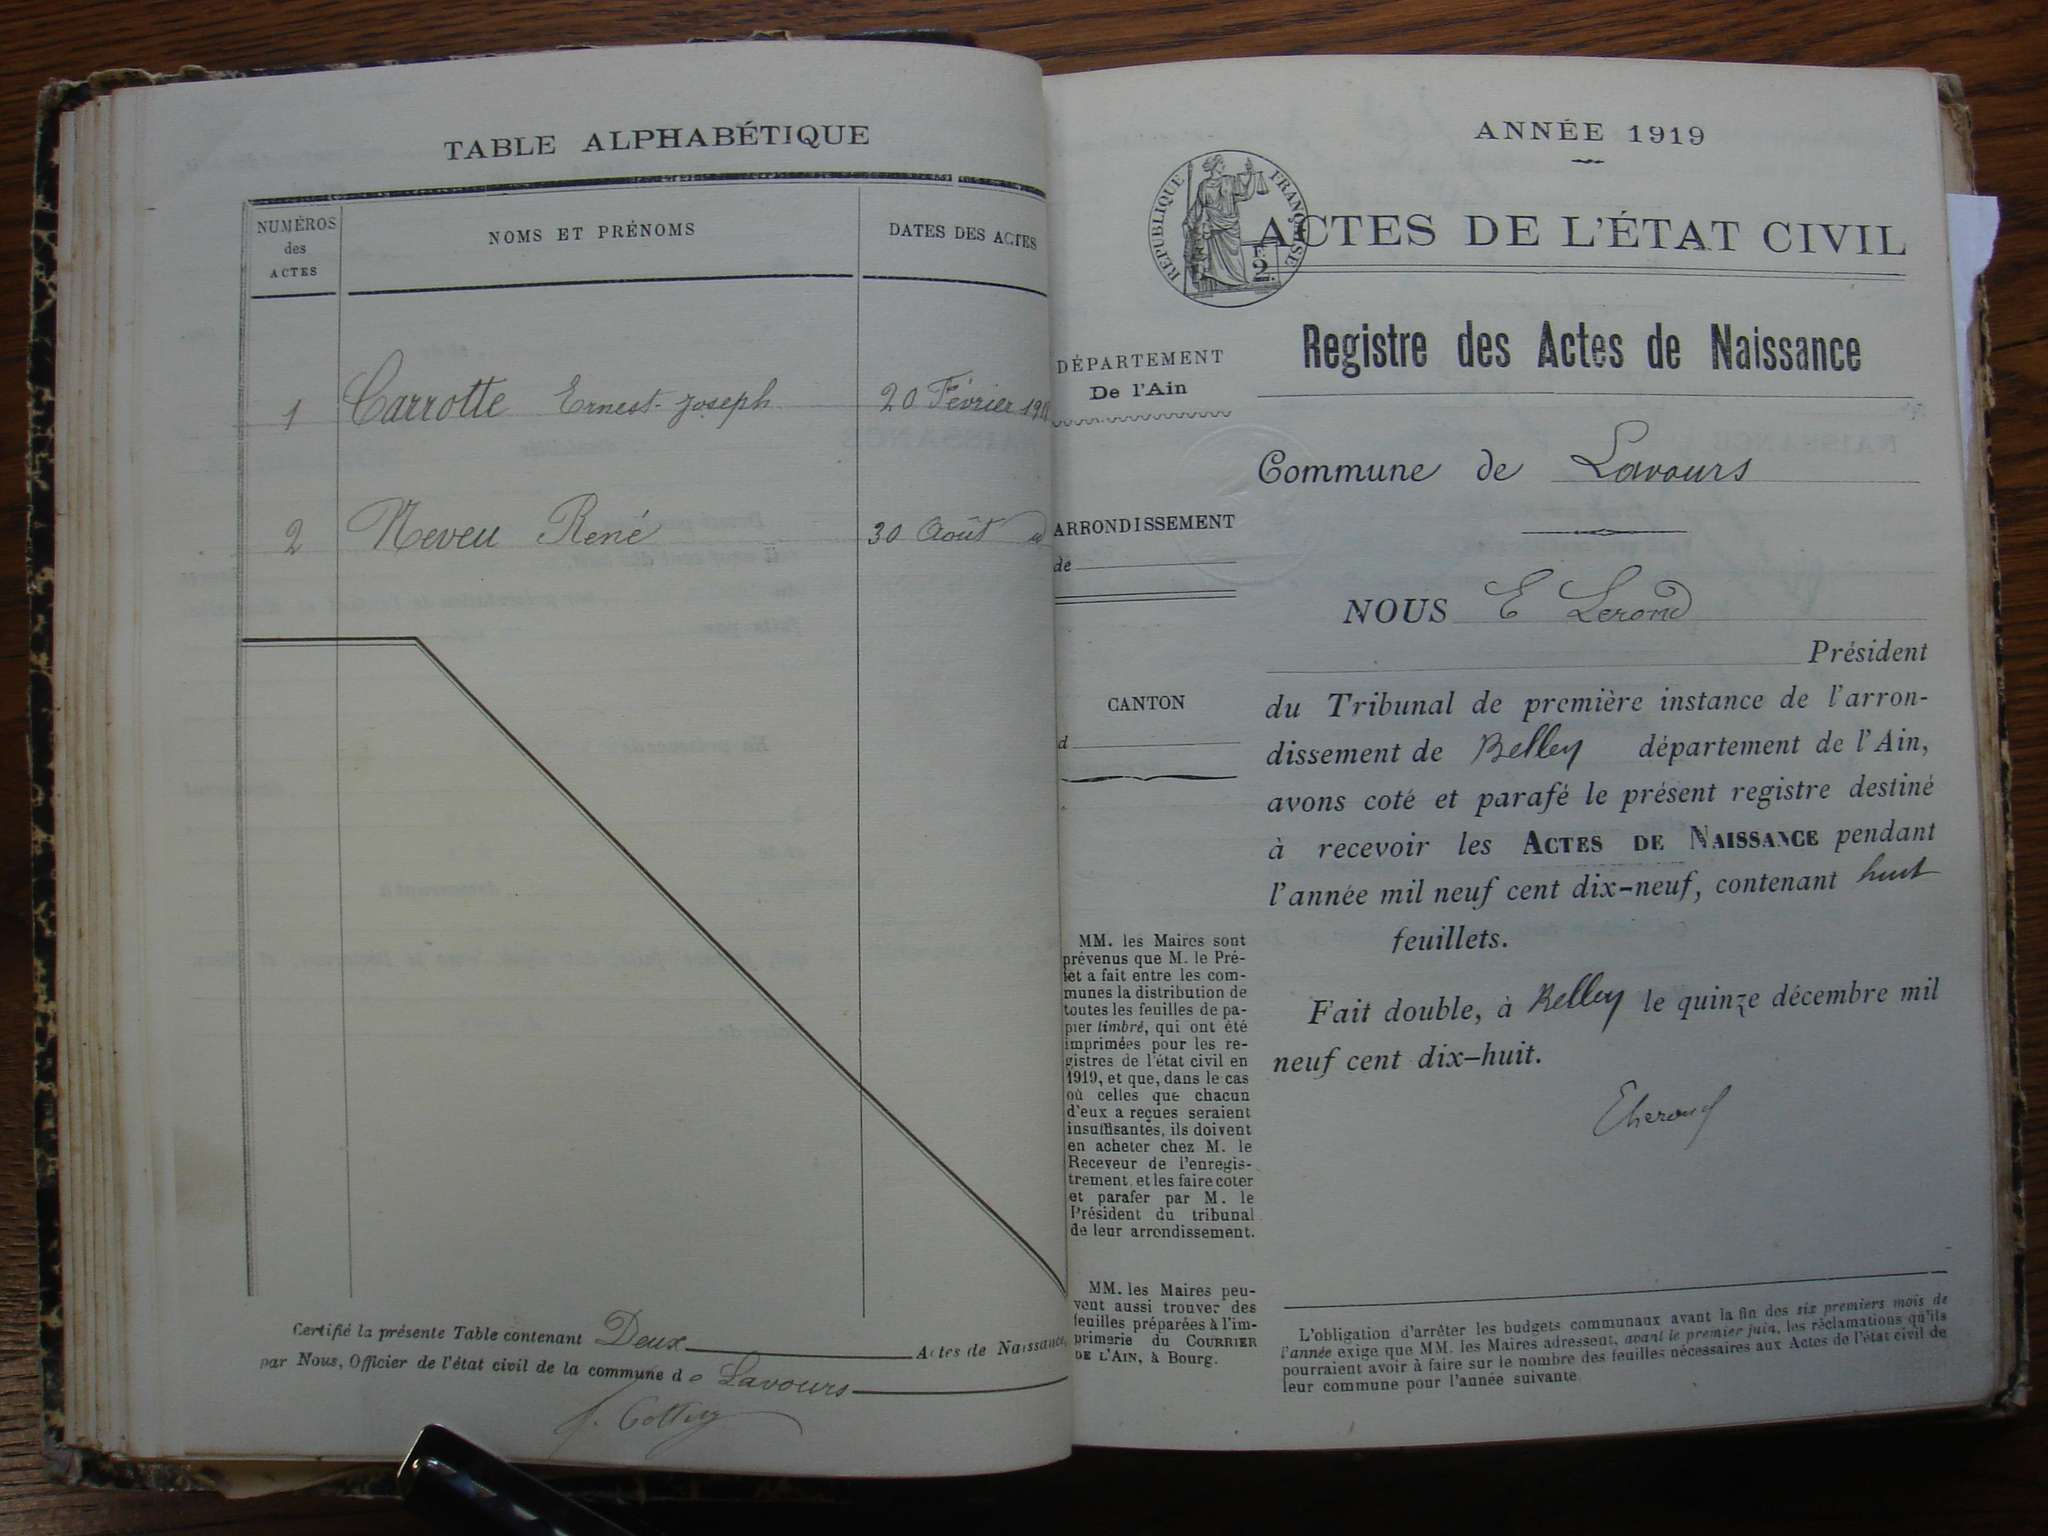 TABLE ALPHABÉTIQUE
NUMÉROS
des
ACTES
NOMS ET PRÉNOMS
DATES DES ACTES
1 Carrotte Ernest-Joseph 20 Février
2 Neveu René 30 Août
Certifié la présente Table contenant Deux Actes de Naissance,
par Nous, Officier de l'état civil de la commune de Lavours
ANNÉE 1919
RÉPUBLIQUE FRANÇAISE
F.
2.
ACTES DE L'ÉTAT CIVIL
DÉPARTEMENT
De l'Ain
ARRONDISSEMENT
de
CANTON
d
MM. les Maires sont
prévenus que M. le Pré-
fet a fait entre les com-
munes la distribution de
toutes les feuilles de pa-
pier timbré, qui ont été
imprimées pour les re-
gistres de l'état civil en
1919, et que, dans le cas
où celles que chacun
d'eux a reçues seraient
insuffisantes, ils doivent
en acheter chez M. le
Receveur de l'enregis-
trement, et les faire coter
et parafer par M. le
Président du tribunal
de leur arrondissement.
MM. les Maires peu-
vent aussi trouver des
feuilles préparées à l'im-
primerie du COURRIER
DE L'AIN, à Bourg.
Registre des Actes de Naissance
Commune de Lavours
NOUS E Lerond
Président
du Tribunal de première instance de l'arron-
dissement de Belley département de l'Ain,
avons coté et parafé le présent registre destiné
à recevoir les ACTES DE NAISSANCE pendant
l'année mil neuf cent dix-neuf, contenant huit
feuillets.
Fait double, à Belley le quinze décembre mil
neuf cent dix-huit.
L'obligation d'arrêter les budgets communaux avant la fin des six premiers mois de
l'année exige que MM. les Maires adressent, avant le premier juin, les réclamations qu'ils
pourraient avoir à faire sur le nombre des feuilles nécessaires aux Actes de l'état civil de
leur commune pour l'année suivante.